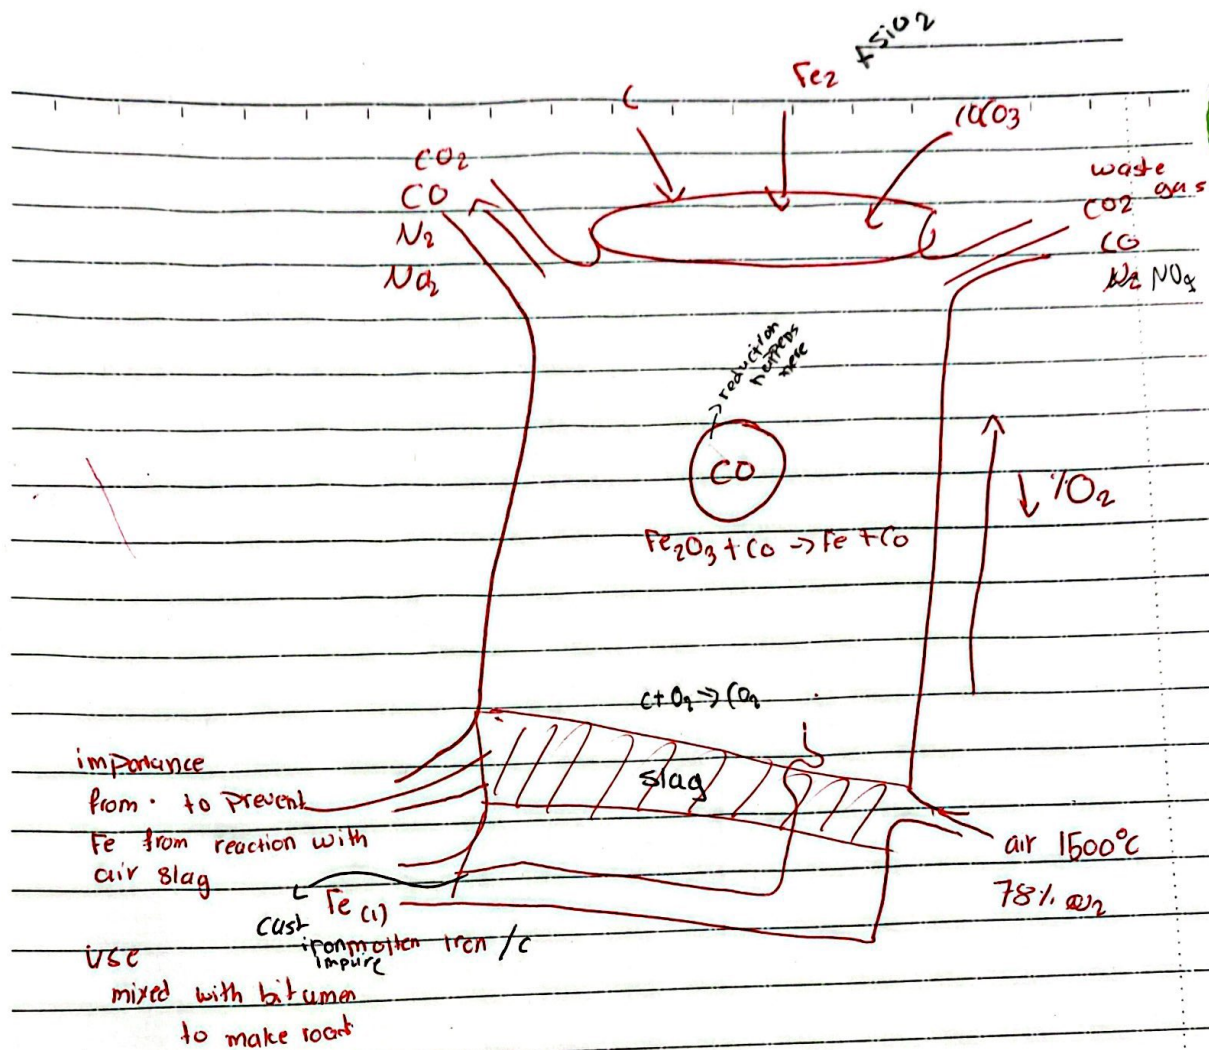 + SiO2
Fe2
C
CO2
CO
N2
NO2
waste
gas
CO2
CO
N2 NO2
→ reduction
happens
here
CO
↓ %O2
Fe2O3 + Co → Fe + Co
C+O2 → CO2
slag
importance
from . to prevent
Fe from reaction with
air slag
air 1500°C
78%
Fe (l)
cast
iron molten iron /c
impure
use
mixed with bitumen
to make road